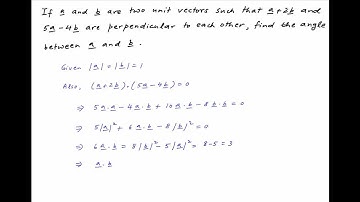 If a and b are two unit vectors such that a+2b and
5a-4b are perpendicular to each other, find the angle
between a and b.
Given |a| = |b| = 1
Also, (a+2b).(5a-4b)=0
⇒ 5a.a - 4a.b + 10a.b - 8b.b = 0
⇒ 5|a|² + 6a.b - 8|b|² = 0
⇒ 6a.b = 8|b|² - 5|a|² = 8-5 = 3
⇒ a.b